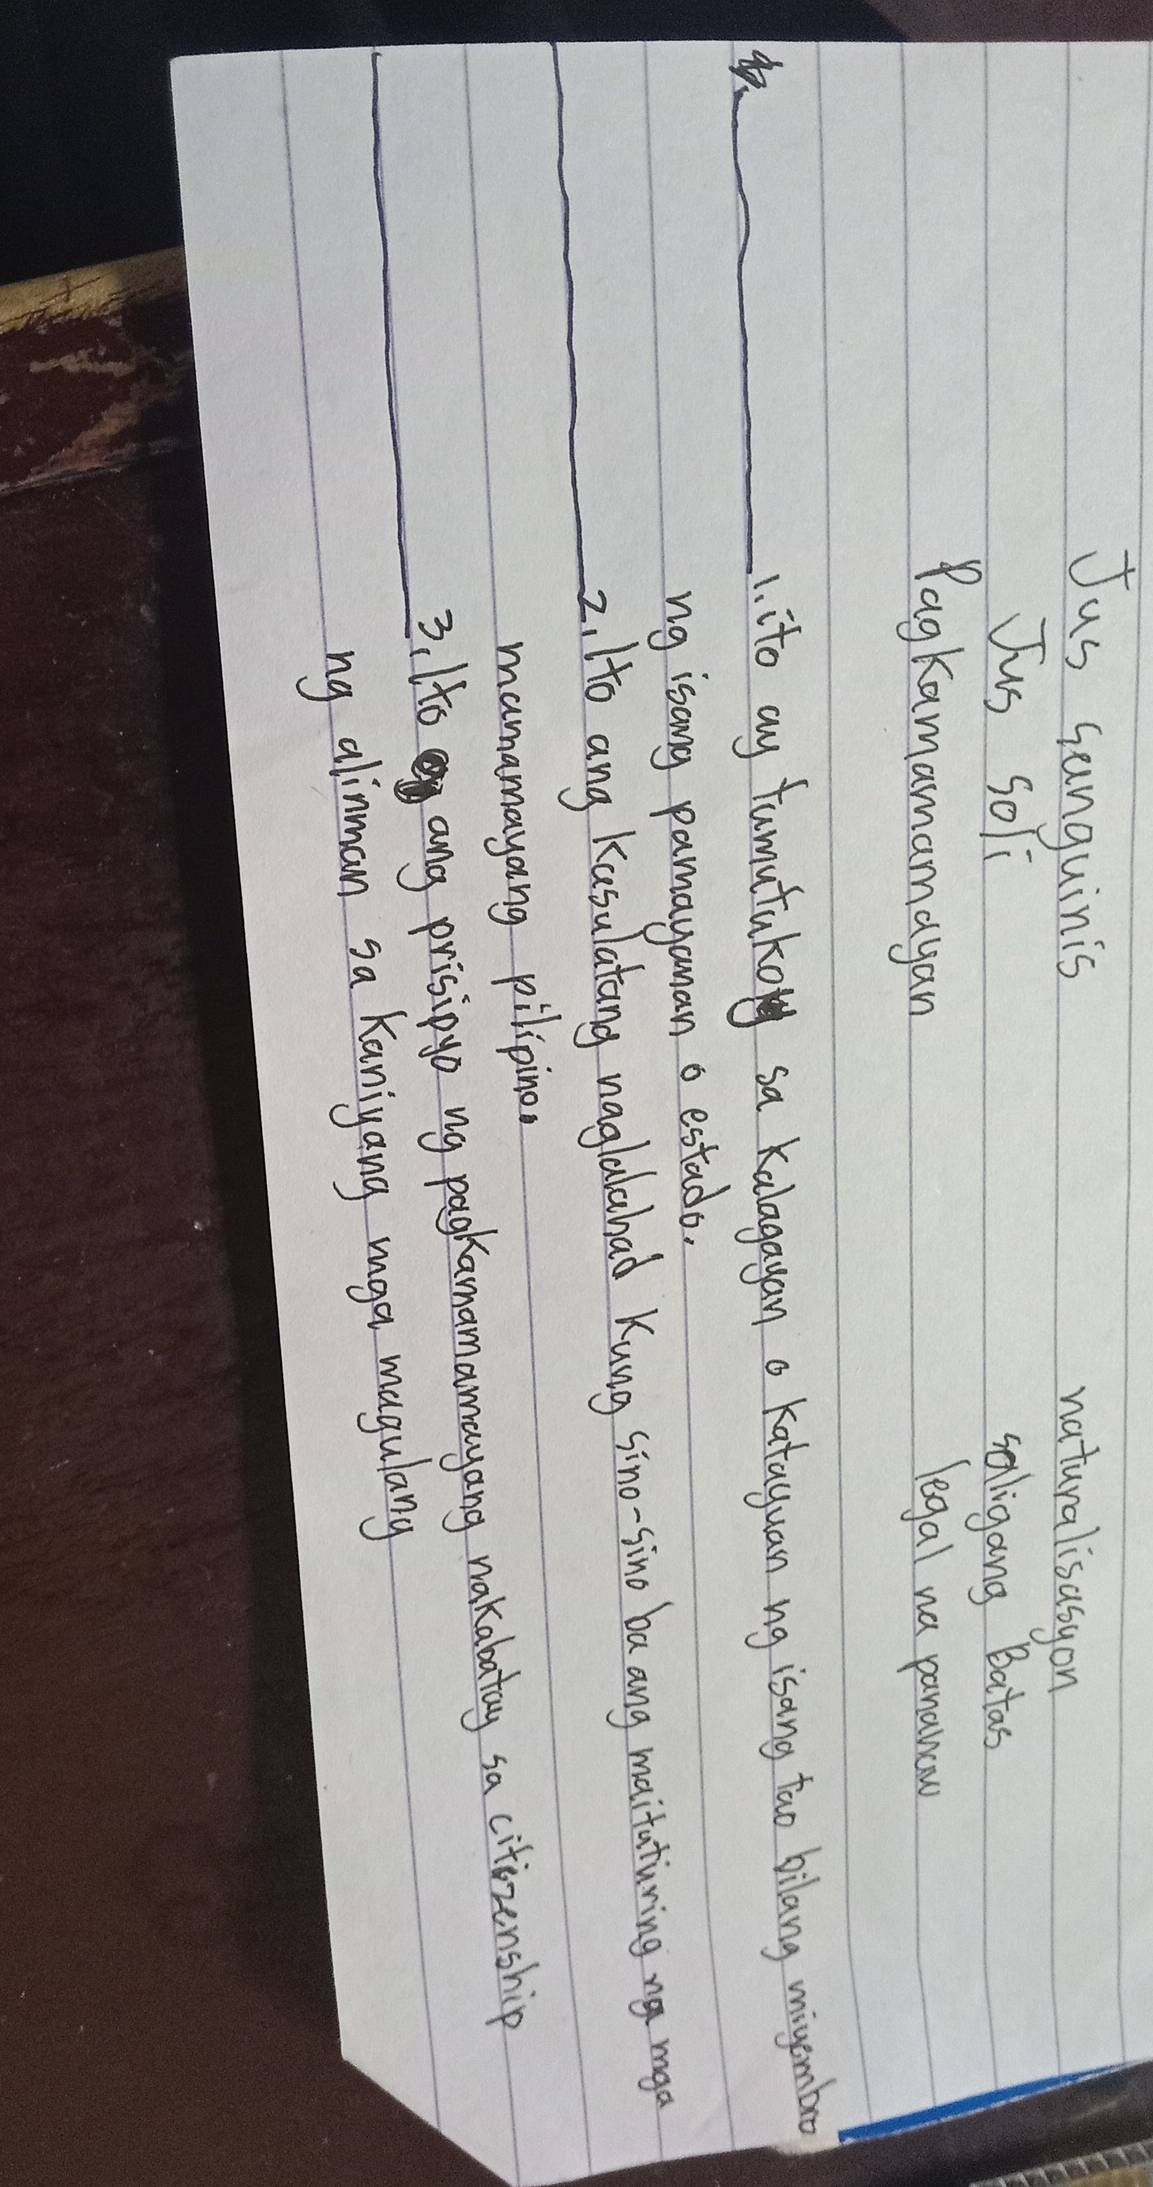 Jus sanguinis naturalisasyon
Jus soli saligang Batas
Pagkamamamayan legal na pananaw
1. ito ay tumutukoy sa kalagayan o katayuan ng isang tao bilang miyembro
ng isang pamayanan o estado.
2. Ito ang kasulatang naglalahad kung sino-sino ba ang maituturing na mga
mamamayang pilipino.
3. Ito ang prisipyo ng pagkamamamayang nakabatay sa citizenship
ng alinman sa kaniyang mga magulang